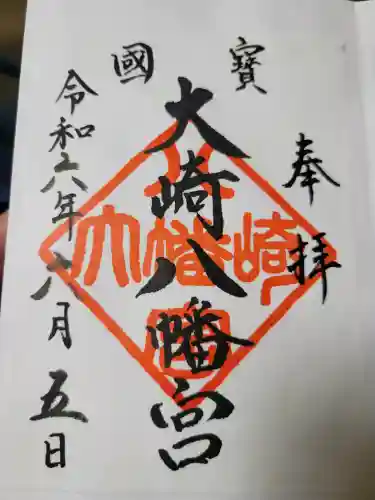 奉拝
國寳
大崎八幡宮
令和六年八月五日
大崎八幡宮